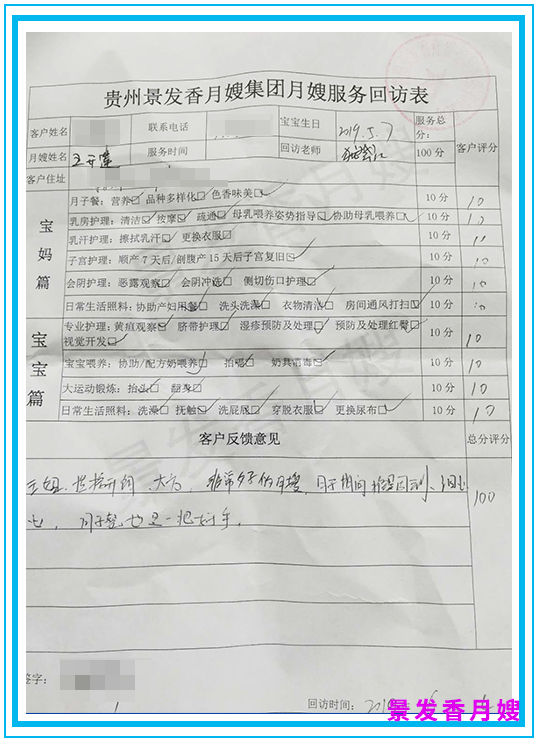 贵州景发香月嫂集团月嫂服务回访表
客户姓名 联系电话 宝宝生日 2019.5.7 服务总分: 客户评分
月嫂姓名 服务时间 回访老师 100分
客户住址
宝妈篇
月子餐: 营养☑ 品种多样化☑ 色香味美☑ 10分 10
乳房护理: 清洁☑ 按摩☑ 疏通☑ 母乳喂养姿势指导☑ 协助母乳喂养☑ 10分 10
乳汗护理: 擦拭乳汗☑ 更换衣服☑ 10分 10
子宫护理: 顺产7天后/剖腹产15天后子宫复旧☑ 10分 10
会阴护理: 恶露观察☑ 会阴冲洗☑ 侧切伤口护理☑ 10分 10
日常生活照料: 协助产妇用餐☑ 洗头洗澡☑ 衣物清洁☑ 房间通风打扫☑ 10分 10
宝宝篇
专业护理: 黄疸观察☑ 脐带护理☑ 湿疹预防及处理☑ 预防及处理红臀☑
视觉开发☑ 10分 10
宝宝喂养: 协助/配方奶喂养☑ 拍嗝☑ 奶具消毒☑ 10分 10
大运动锻炼: 抬头☑ 翻身☑ 10分 10
日常生活照料: 洗澡☑ 抚触☑ 洗屁屁☑ 穿脱衣服☑ 更换尿布☑ 10分 10
客户反馈意见 总分评分
王姐 性格开朗、大方, 非常好的月嫂, 月子期间
月子餐也是一把好手。
100
签字:
回访时间:
景发香月嫂